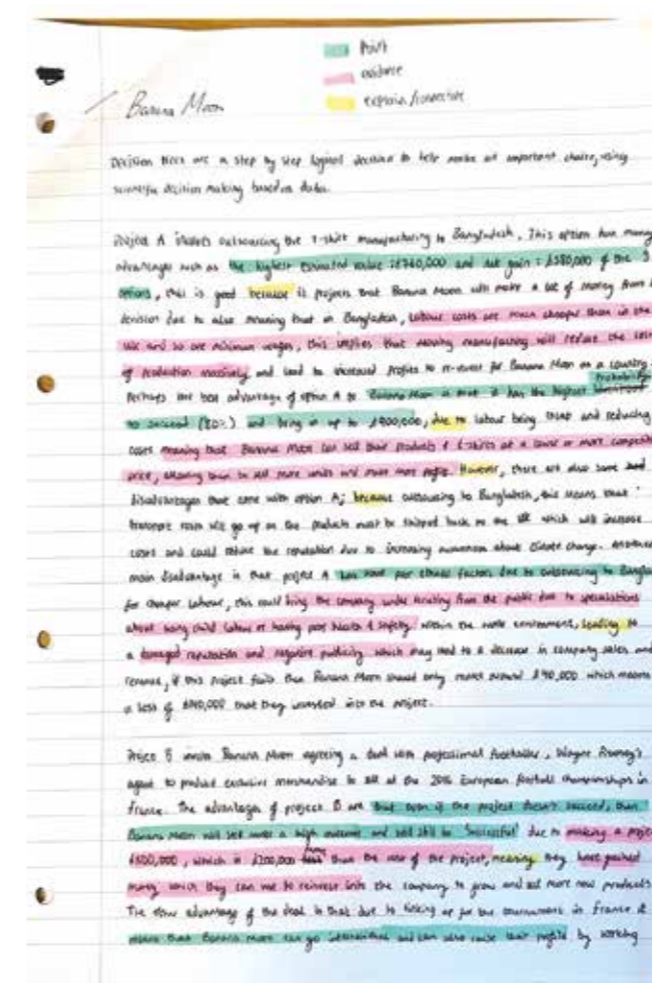 Point
evidence
explain/connective
Banana Moon
Decision trees are a step by step logical decision to help make an important choice, using
scientific decision making based on data.
Project A involves outsourcing the T-shirt manufacturing to Bangladesh. This option has many
advantages such as the highest estimated value : £760,000 and net gain : £580,000 of the 3
options, this is good because it projects that Banana Moon will make a lot of money from
decision due to also meaning that in Bangladesh, labour costs are much cheaper than in the
UK and so are minimum wages, this implies that moving manufacturing will reduce the
of production massively and lead to increased profits to re-invest for Banana Moon as a
Perhaps the best advantage of option A to Banana Moon is that it has the highest probability
to succeed (80%) and bring in up to £900,000, due to labour being cheap and reducing
costs meaning that Banana Moon can sell their products & t-shirts at a lower or more
price, allowing them to sell more units and make more profit. However, there are also some
disadvantages that come with option A; because outsourcing to Bangladesh, this means that
transport costs will go up as the products must be shipped back to the UK which will increase
costs and could reduce the reputation due to increasing awareness about climate change. Another
main disadvantage is that project A has poor ethical factors due to outsourcing to
for cheaper labour, this could bring the company under scrutiny from the public due to speculations
about using child labour or having poor health & safety within the work environment, leading to
a damaged reputation and negative publicity which may lead to a decrease in company sales and
revenue, if this project fails then Banana Moon should only make around which means
a loss of that they invested into the project.
Project B involves Banana Moon agreeing a deal with professional footballer, Wayne Rooney's
agent to product exclusive merchandise to sell at the 2016 European football championships in
France. The advantages of project B are that even if the project doesn't succeed, then
Banana Moon will still make a high outcome and will still be 'successful' due to making a
£500,000, which is £200,000 than the cost of the project, meaning they have gained
money which they can use to reinvest into the company to grow and sell more new products.
The advantage of the deal is that due to linking up for the tournament in France it
means that Banana Moon can go international and can also raise their profile by working